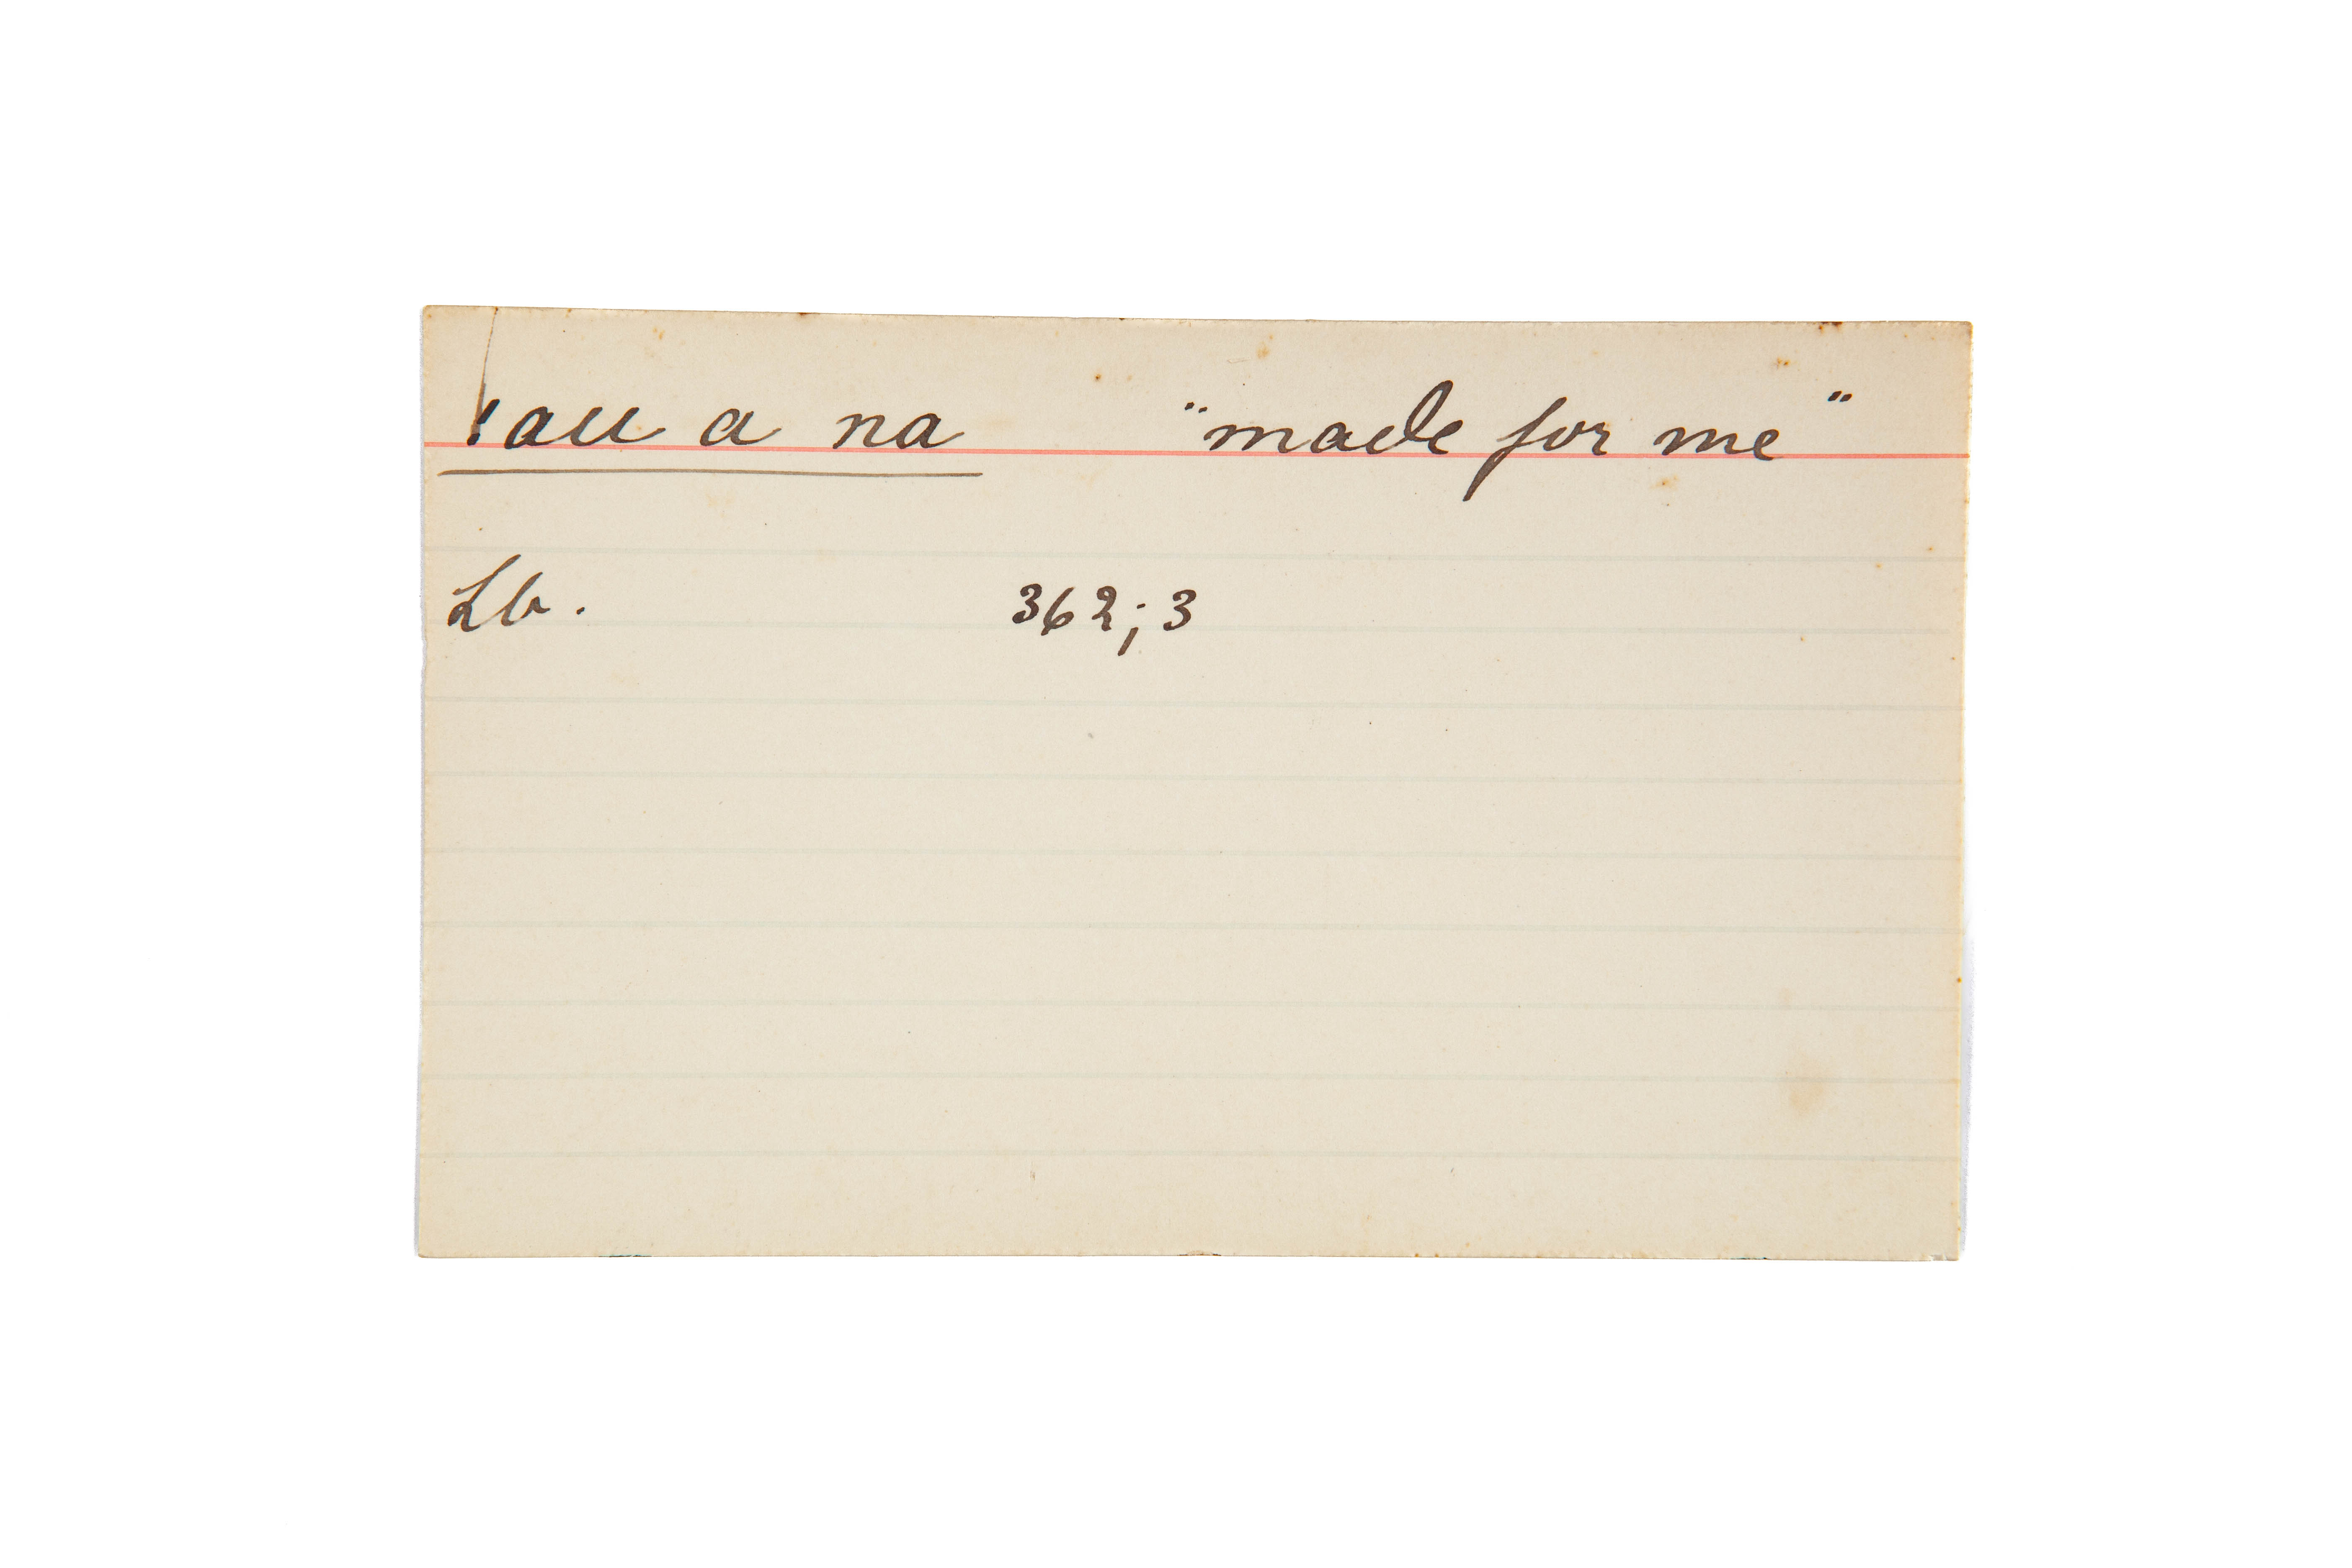 !au a na "made for me"
Lb. 362; 3